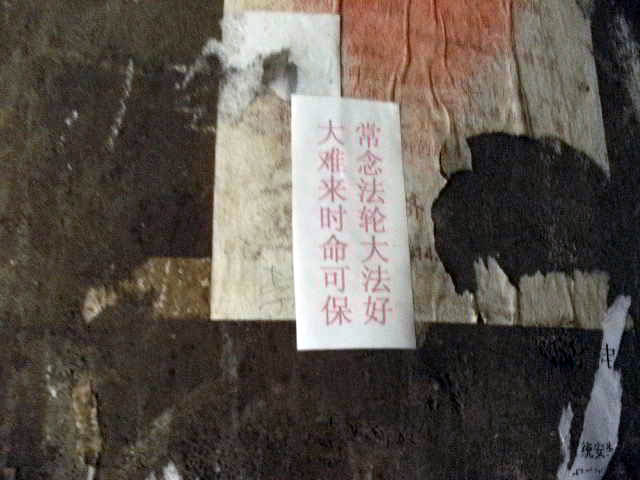 常念法轮大法好
大难来时命可保
统安